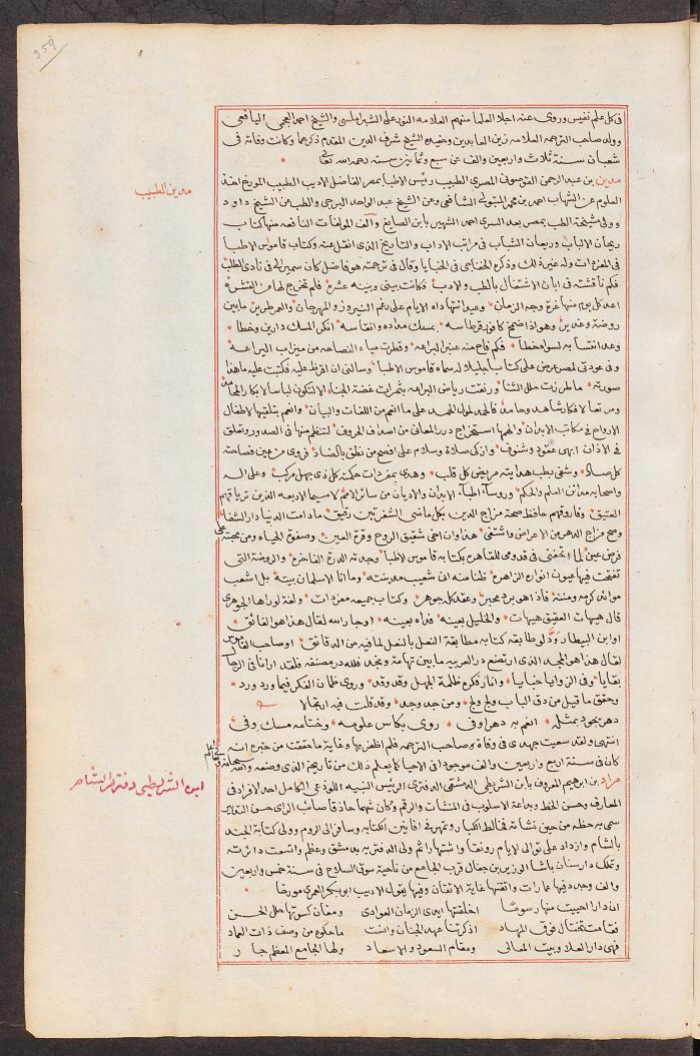 359
في كل علم نفيس وروى عنه اجلا العلما منهم العلامه النور على الشبراملسي والشيخ احمد العجمي اليافعي
وولد صاحب الترجمه العلامه زين العابدين وحفيده الشيخ شرف الدين المقدم ذكرهما وكانت وفاته في
شعبان سنة ثلاث واربعين والف عن سبع وثمانين سنه رحمه الله تعالى
مدين بن عبد الرحمن القوصوني المصري الطبيب رئيس الاطبا بمصر الفاضل الاديب الطبيب المورخ اخذ
مدين الطبيب
العلوم عن الشهاب احمد بن محمد المتبولي الشافعي وعن الشيخ عبد الواحد البرجي والطب عن الشيخ داود
وولى مشيخة الطب بمصر بعد السري احمد الشهير بابن الصايغ والف المولفات النافعه منها كتاب
ريحان الالباب وريعان الشباب في مراتب الاداب والتاريخ الذي انقل عنه وكتاب قاموس الاطبا
في المفردات وله غير ذلك وذكره الخفاجي في الخبايا وقال في ترجمته هو فاضل كان سميري في نادي الطلب
فكم ناقشته في ابان الاشتغال بالطب والادب فكانت بيني وبينه عشره فلم تخرج لها من القشره
اعد كل يوم منها غرة وجه الزمان وعيد انتهاداه الايام على رغم النيروز والمهرجان والعمر طرس ما بين
روضة وغدير وهو اذا ضمخ كافور قرطاسه بمسك مداده وانفاسه انكر المسك دارين وخطا
وعد انتسابه لسواه خطا فكم فاح منه عنبر البراعه وقطرت مياه الفصاحه من ميزاب اليراعه
وفي عودتي لمصر عرض علي كتابا جليلا له سماه قاموس الاطبا وسالني ان اقرظ عليه فكتبت عليه ما هذا
صورته ما طرزت حلل الثنا ورنقت رياض البراعه بثمرات غضة الجنا الا لتكون لباسا لابكار المحامد
كل صاد وشفى بطب هدايته مريض كل قلب وهدى بمفردات حكمته كل ذي جهل مركب وعلى اله
العتيق وفاروقهم حافظ صحة مزاج الدين بكل ماضي الشفرتين رقيق مادامت الدنيا دار الشفا
وصح مزاج الدهر من الاعراض واشتفى هذا وان اخي شقيق الروح وقرة العين وصفوة الحياه ومن محبته على
فرض عين لما اتحفني في قدومي للقاهره بكتابه قاموس الاطبا وجدته الدرة الفاخره والروضة التي
تفتحت فيها عيون انواره الزاهره ظنا منه ان شعيب مدينته وما انا الا سلمان بيته بل اشعب
موائد كرمه ومنته فاذا هو برد محبر وعقد كله جوهر وكتاب جميعه مفردات ولغة لو راها الجوهري
قال هيهات العقيق هيهات والخليل بعينه فداه بعينه او جار الله لقال هذا هو الفائق
او ابن البيطار ودّ لو طابقه كتابه مطابقة النعل بالنعل لما فيه من الدقائق او صاحب القاموس
لقال هذا هو المجد الذي ارتفع در العربيه ما بين تهامة ونجد فلله در مصنفه فلقد ارانا في الرجال
بقايا وفي الزوايا خبايا وانار فكره ظلمة الجهل وقد وقد وروى ظمان الفكر فيما ورد ورد
وحقق ما قيل من دق الباب ولج ولج ومن جد وجد وقد قلت فيه ارتجالا
دهر يجود بمثله انعم به دهرا وفى روى بكاس علومه وختامه مسك وفى
انتهى ولقد سعيت جهدي في وفاة صاحب الترجمه فلم اظفر بها وغاية ما حققت من خبره انه
كان في سنة اربع واربعين والف موجود في الاحيا كما يعلم ذلك من تاريخه الذي وضعه والله سبحانه وتعالى اعلم
مراد بن ابراهيم المعروف بابن الشريطي الدمشقي الدفتري الرئيس النبيه اللوذعي الكامل احد الافراد في
ابن الشريطي دفتردار الشام
المعارف وحسن الخط وبداعة الاسلوب في المنشات والرقم وكان شهما حاذقا صائب الراي حسن التعابير
سمى به حظه من حين نشاته فخالط الكبار وتمهر في افانين الكتابه وسافر الى الروم وولى كتابة الجند
بالشام وازداد على توالي الايام رونقا واشتهارا ثم ولى الدفتريه بدمشق وعظم واتسعت دائرته
وتملك دار سنان باشا الوزير بن جغال قرب الجامع من ناحية سوق السلاح في سنة خمس واربعين
والف وجدد فيها عمارات واتقنها غاية الاتقان وفيها يقول الاديب ابو بكر العمري مورخا
ان دارا احييت منها رسوما اخلقتها ايدي الزمان العوادي ومغان كسوتها حلل الحسن
فقامت تختال فوق المهاد اذكرتنا عهد الجنان وانست ما حكوه من وصف ذات العماد
فهي دار العلا وبيت المعالي ومقام السعود والاسعاد ولها الجامع المعظم جار